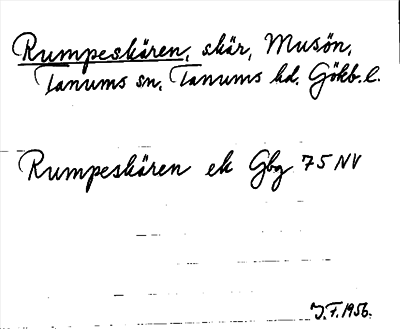 Rumpeskären, skär, Musön,
Tanums sn, Tanums hd. Gökb. l.
Rumpeskären ek Gbg 75 NV
J.F. 1956.